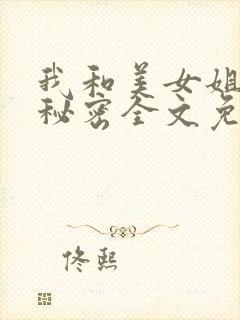 我和美女姐
秘密全文免
佟熙